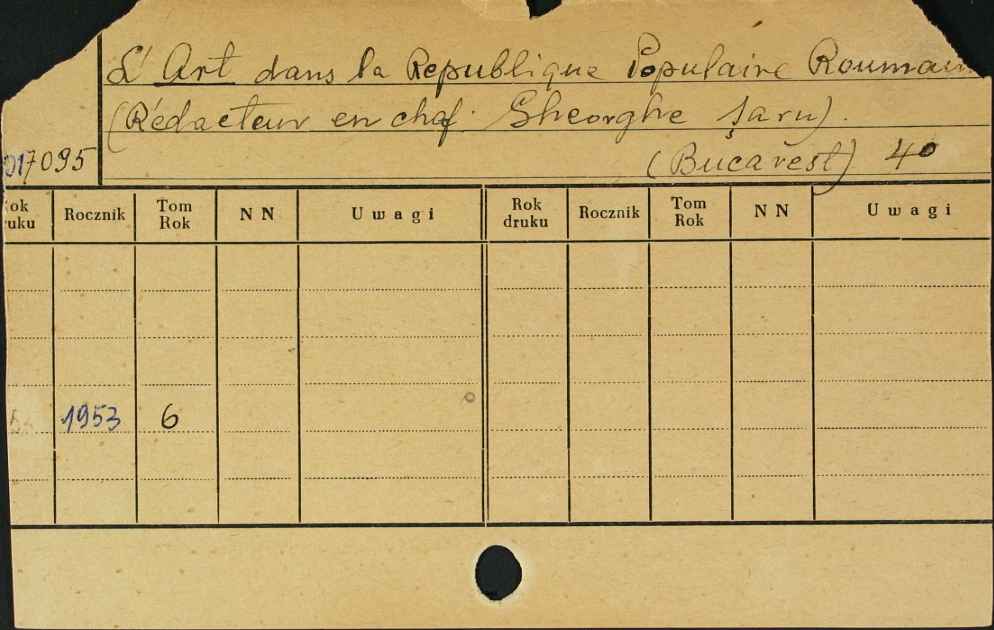 L'Art dans la Republique Populaire Roumain
(Rédacteur en chef: Gheorghe Șaru).
7095 (Bucarest) 4°
ok ruku Rocznik Tom Rok N N Uwagi Rok druku Rocznik Tom Rok N N Uwagi
1953 6